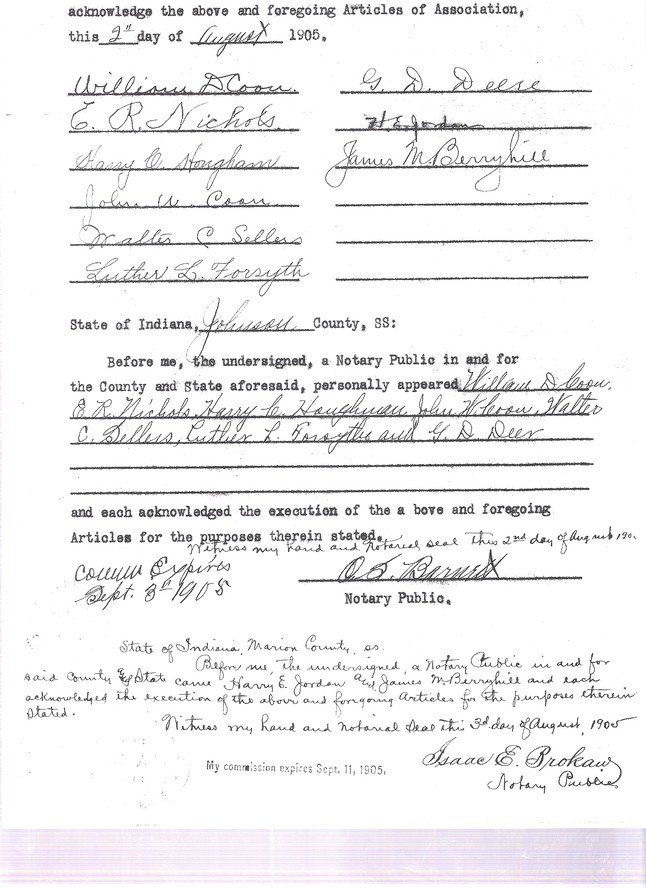 acknowledge the above and foregoing Articles of Association,
this 2" day of August 1905.
William D Coon.
E. R. Nichols.
Harry C. Hougham
John W. Coon
Walter C Sellers
Luther L. Forsyth
G. D. Deese
H. E. Jordan
James M. Berryhill
State of Indiana, Johnson County, SS:
Before me, the undersigned, a Notary Public in and for
the County and State aforesaid, personally appeared William D Coon,
E. R. Nichols, Harry C. Houghman, John W. Coon, Walter
C. Sellers, Luther L. Forsythe and G. D. Deer
and each acknowledged the execution of the a bove and foregoing
Articles for the purposes therein stated.
Witness my hand and Notarial seal this 2nd day of August 190.
Comm Expires
Sept. 3" 1905
Notary Public.
State of Indiana, Marion County, ss.
Before me, the undersigned, a Notary Public in and for
said County & State came Harry E. Jordan and James M. Berryhill and each
acknowledged the execution of the above and foregoing Articles for the purposes therein
stated.
Witness my hand and notarial seal this 3d day of August, 1905
Isaac E. Brokaw
Notary Public
My commission expires Sept. 11, 1905.